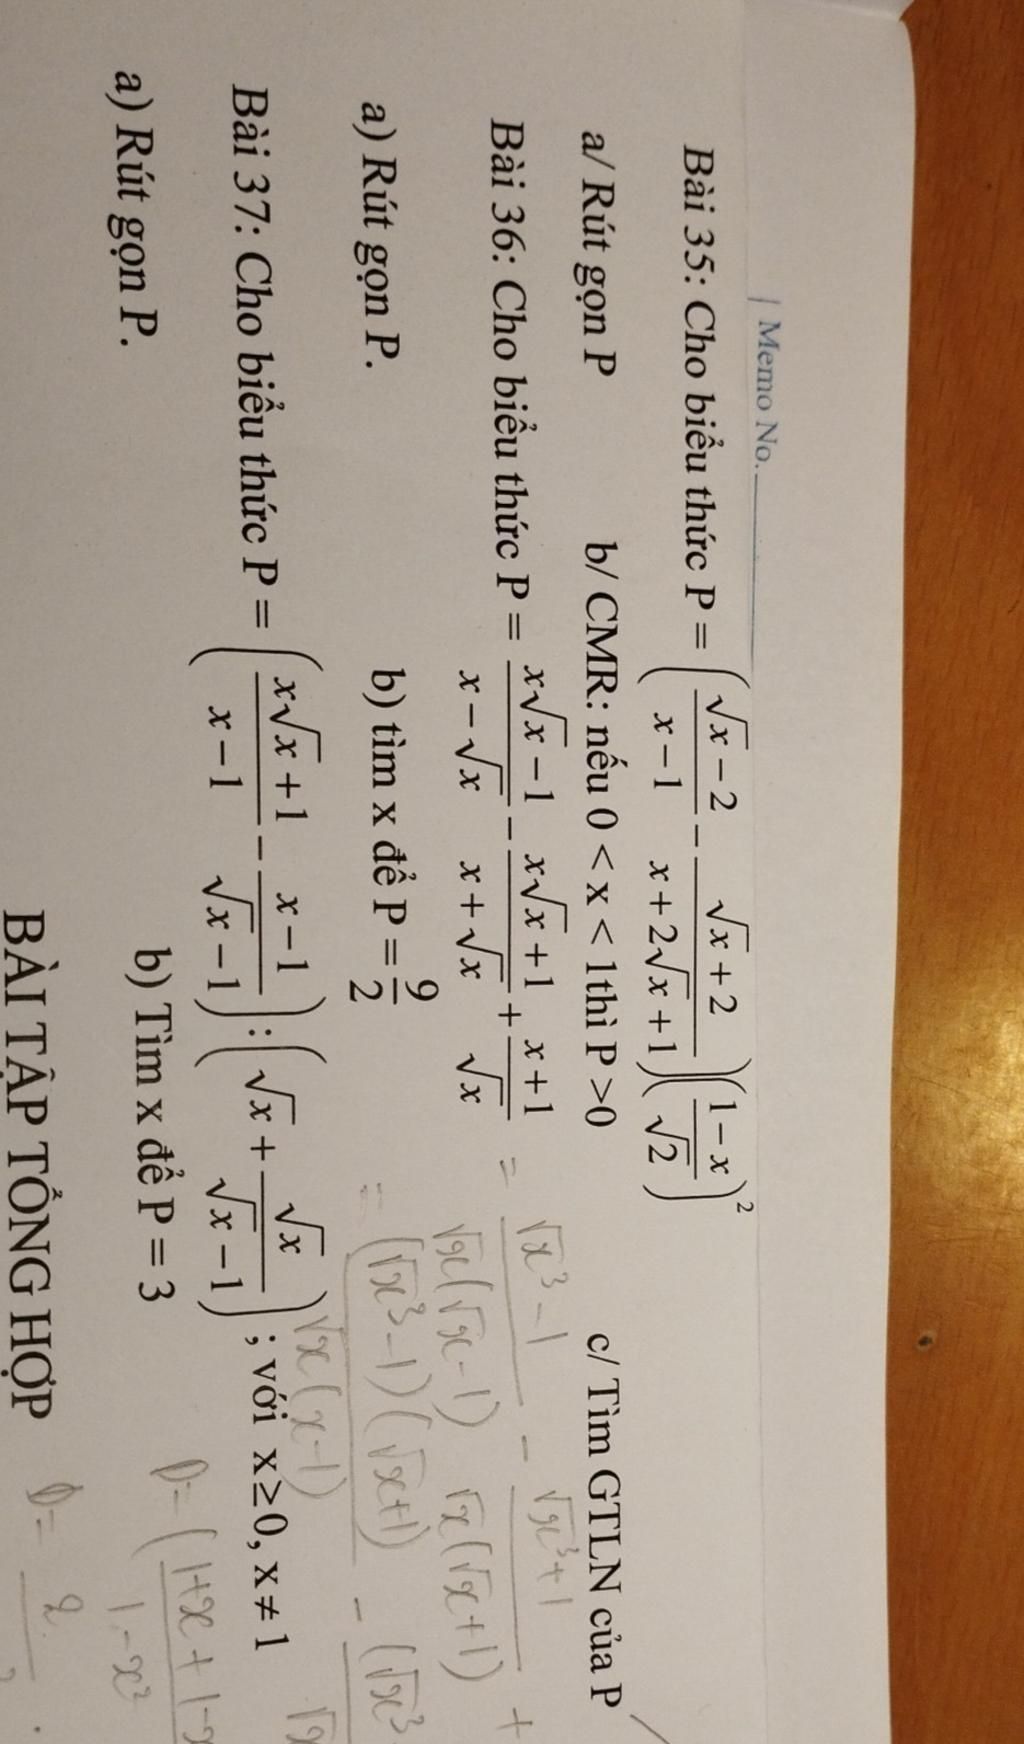 | Memo No.
Bài 35: Cho biểu thức P = ( (√x − 2)/(x − 1) − (√x + 2)/(x + 2√x + 1) ) ( (1 − x)/√2 )²
a/ Rút gọn P b/ CMR: nếu 0 < x < 1thì P >0 c/ Tìm GTLN của P
Bài 36: Cho biểu thức P = (x√x − 1)/(x − √x) − (x√x + 1)/(x + √x) + (x + 1)/√x = (√x³ − 1)/(√x(√x − 1)) − (√x³ + 1)/(√x(√x + 1)) +
a) Rút gọn P. b) tìm x để P = 9/2 = (√x³ − 1)(√x+1)/(√x(x−1)) − (√x³
Bài 37: Cho biểu thức P = ( (x√x + 1)/(x − 1) − (x − 1)/(√x − 1) ) : ( √x + √x/(√x − 1) ) ; với x ≥ 0, x ≠ 1
a) Rút gọn P. b) Tìm x để P = 3
BÀI TẬP TỔNG HỢP